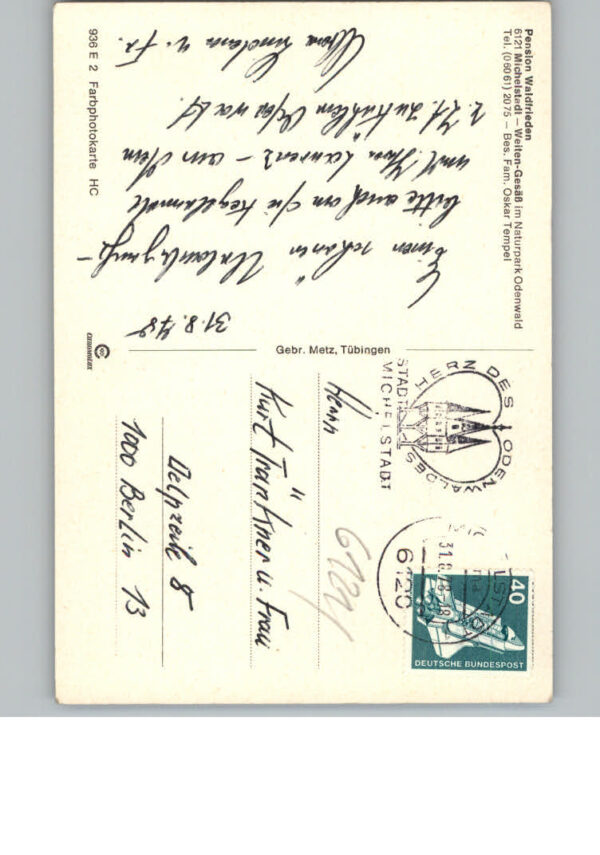 Pension Waldfrieden
6121 Michelstadt – Weiten-Gesäß im Naturpark Odenwald
Tel. (06061) 2075 – Bes. Fam. Oskar Tempel
31.8.78
Einen schönen Urlaubsgruß –
bitte auch an die
und
z. Zt.
u. Fr.
936 E 2 Farbphotokarte HC
Gebr. Metz, Tübingen
HERZ DES ODENWALDES
STADT
MICHELSTADT
6120
31.8.78-18
40
DEUTSCHE BUNDESPOST
6121
Herrn
Kurt Tränkner u. Frau
Delpzeile 8
1000 Berlin 13